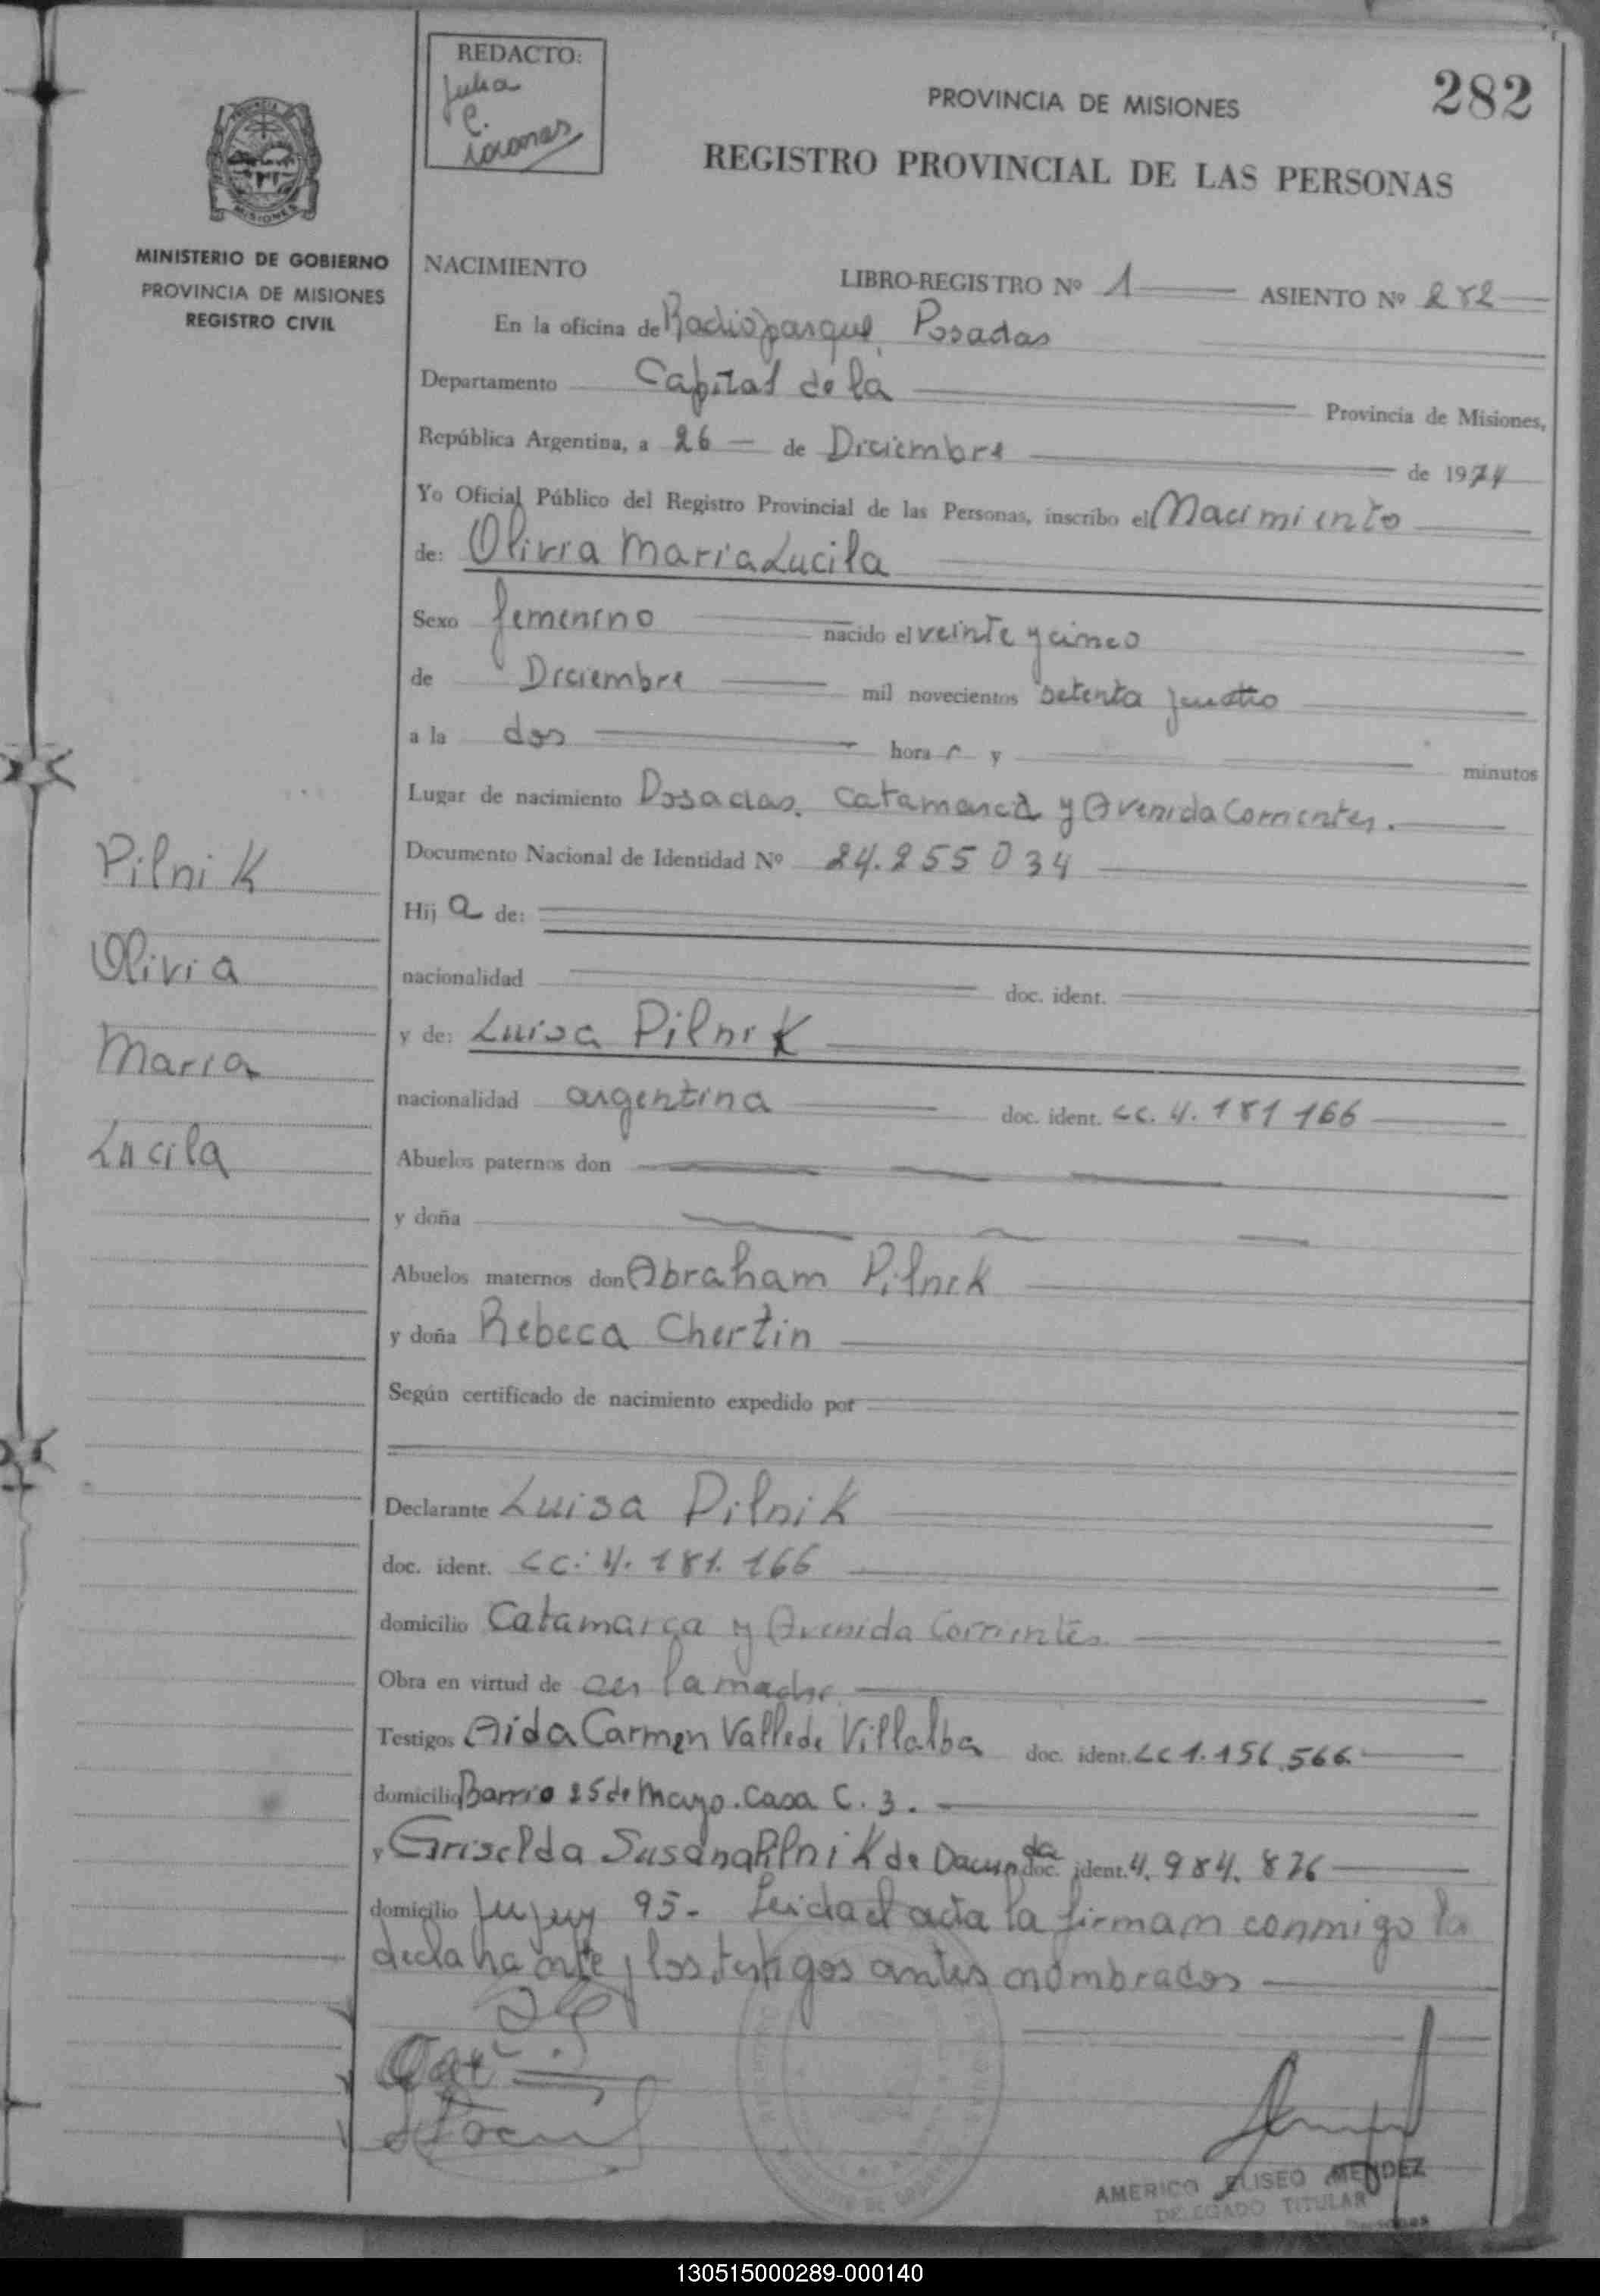 REDACTO:
Julia
C.
282
PROVINCIA DE MISIONES
REGISTRO PROVINCIAL DE LAS PERSONAS
MISIONES
MINISTERIO DE GOBIERNO
PROVINCIA DE MISIONES
REGISTRO CIVIL
NACIMIENTO LIBRO-REGISTRO Nº 1 ASIENTO Nº 282
En la oficina de Radioparque, Posadas
Departamento Capital de la Provincia de Misiones,
República Argentina, a 26 de Diciembre de 1974
Yo Oficial Público del Registro Provincial de las Personas, inscribo el Nacimiento
de: Olivia Maria Lucila
Sexo femenino nacido el veinte y cinco
de Diciembre mil novecientos setenta y cuatro
a la dos hora s y minutos
Lugar de nacimiento Posadas. Catamarca y Avenida Corrientes.
Documento Nacional de Identidad Nº 24.255034
Hij a de:
nacionalidad doc. ident.
y de: Luisa Pilnik
nacionalidad argentina doc. ident. LC. 4.181166
Abuelos paternos don
y doña
Abuelos maternos don Abraham Pilnik
y doña Rebeca Chertin
Según certificado de nacimiento expedido por
Declarante Luisa Pilnik
doc. ident. LC: 4.181.166
domicilio Catamarca y Avenida Corrientes.
Obra en virtud de ser la madre.
Testigos Aida Carmen Valle de Villalba doc. ident. LC 1.156.566
domicilio Barrio 25 de Mayo. Casa C. 3.
y Griselda Susana Pilnik de Dacunda doc. ident. 4.984.876
domicilio Jujuy 95- Leida el acta la firman conmigo la
declarante y los testigos antes nombrados
Pilnik
Olivia
Maria
Lucila
AMERICO ELISEO MENDEZ
DELEGADO TITULAR
130515000289-000140